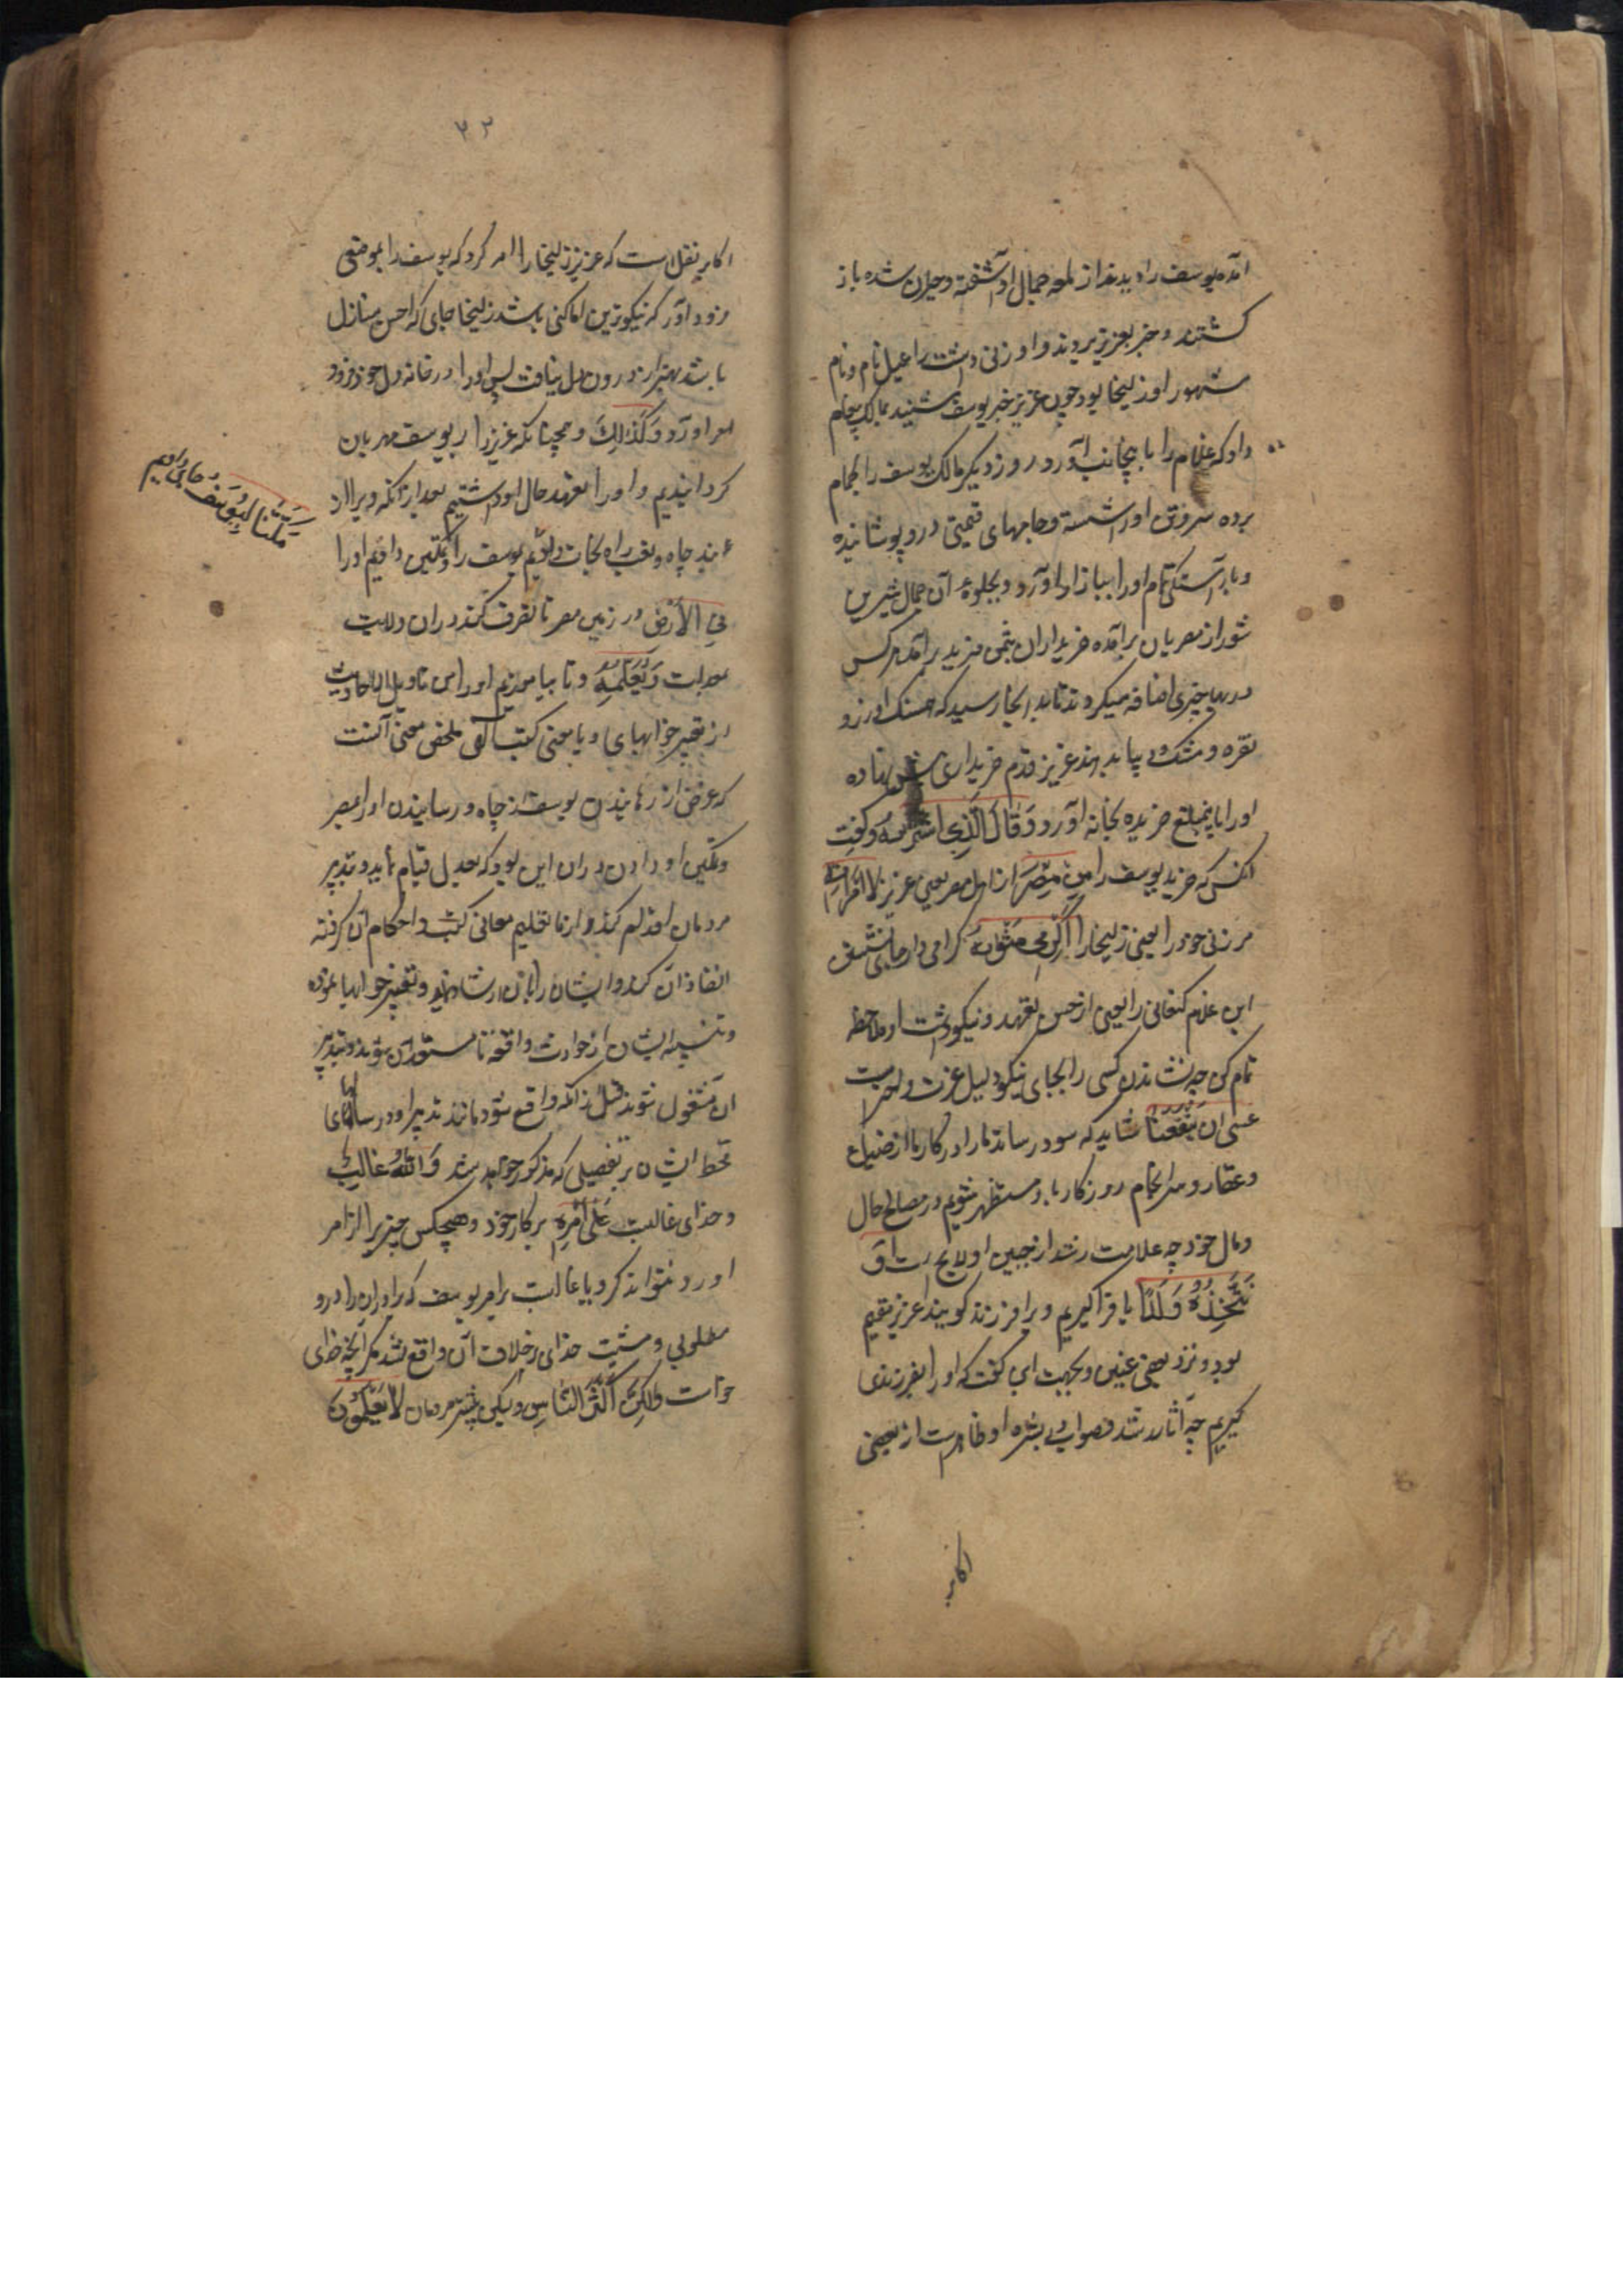 آمده یوسف را دیدند از لمعه جمال او آشفته و حیران شده باز
گشتند و خبر بعزیز بردند و او زنی داشت راعیل نام و نام
مشهور او زلیخا بود چون عزیز خبر یوسف شنید بمالک پیغام
داد که غلام را باینجانب آورد روز دیگر مالک یوسف را بحمام
برده سر و تن او را شسته و جامهای قیمتی درو پوشانیده
و بآراستگی تمام او را ببازار آورد و بجلوه آن جمال شیرین
شور از مصریان برآمده خریداران بثمن مزید برآمد هرکس
در بها چیزی اضافه میکردند تا بدانجا رسید که همسنگ او زر و
نقره و مشک بها بدهند عزیز قدم خریداری پیش نهاده
او را باین مبلغ خریده بخانه آورد وَقَالَ الَّذِی اشْتَرَاهُ و گفت
انکس که خرید یوسف را مِنْ مِصْرَ از اهل مصر یعنی عزیز لِامْرَأَتِهِ
مر زنی خود را یعنی زلیخا را اَکْرِمِی مَثْوَاهُ گرامی دار جای نشستن
این غلام کنعانی را یعنی از حسن تعهد و نیکو داشت او ملاحظه
تمام کن چه نشاندن کسی را بجای نیکو دلیل عزت و احترامست
عَسَی اَنْ یَنْفَعَنَا شاید که سود رساند ما را در کارها از ضیاع
و عقار و سرانجام روزکار ما و مستظهر شویم در مصالح حال
و مال خود چه علامت رشد از جبین او لایح است اَوْ
نَتَّخِذَهُ وَلَدًا یا فراگیریم ویرا فرزند گویند عزیز عقیم
بود و نزد بعضی عنین و بجهت این گفت که او را بفرزندی
گیریم چه آثار رشد و صواب از بشره او ظاهرست از بعضی
اکابر
۷۲
اکابر نقل است که عزیز زلیخا را امر کرد که یوسف را بموضعی
فرود آور که نیکوترین اماکن باشد زلیخا جای که احسن منازل
باشد بهتر از درون دل نیافت پس او را در خانه دل خود فرود
آورد وَکَذَلِکَ و همچنانکه عزیز را بر یوسف مهربان
گردانیدیم و او را بتعهد حال او داشتیم بعد از آنکه ویرا از
مَکَّنَّا لِیُوسُفَ جای دادیم
بند چاه و تعب راه نجات دادیم یوسف را و تمکین دادیم او را
فِی الْأَرْضِ در زمین مصر تا تصرف کند در ان ولایت
بعدالت وَلِنُعَلِّمَهُ و تا بیاموزیم او را مِن تَاوِیلِ الْاَحَادِیثِ
از تعبیر خوابهای و یا معنی کتب الهی ملخص معنی آنست
که غرض از رهانیدن یوسف از چاه و رسانیدن او را بمصر
و تمکین او دادن در ان این بود که بعدل قیام نماید و تدبیر
مردمان اقدام کند و از ما تعلیم معانی کتب و احکام آن گرفته
انفاذ آن کند و ایشان را بآن ارشاد نماید و تعبیر خوابها نموده
و تنبیه ایشان از حوادث واقعه تا مستعد آن شوند و تدبیر
آن مشغول شوند قبل از آنکه واقع شود مانند تدبیر او در سالهای
قحط ایشان بر تفصیلی که مذکور خواهد شد وَاللهُ غَالِبٌ
و خدای غالبست عَلَی اَمْرِهِ بر کار خود و هیچکس چیزیرا از امر
او رد نتواند کرد یا غالبست برامر یوسف که برادران را درو
مطلوبی و مشیت خدای بخلاف آن واقع نشد مگر آنچه خدای
خواست وَلَکِنَّ اَکْثَرَ النَّاسِ و لیکن بیشتر مردمان لَا یَعْلَمُونَ